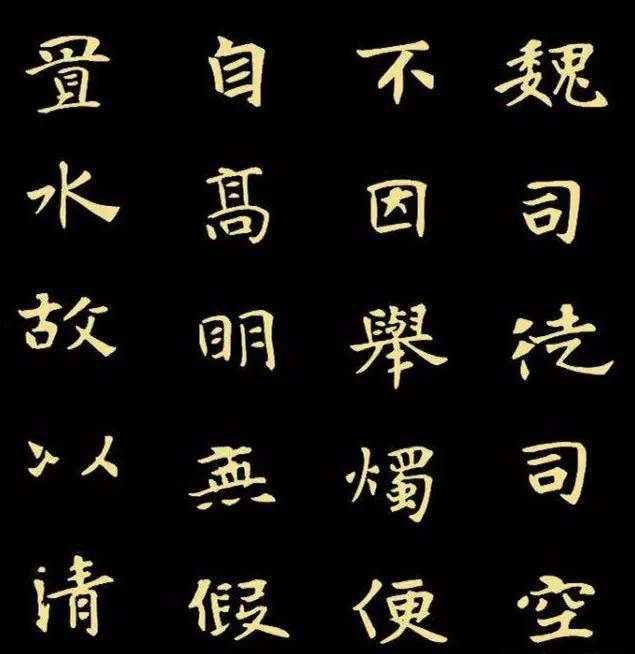 魏司徒司空
不因舉燭便
自髙明無假
置水故以清